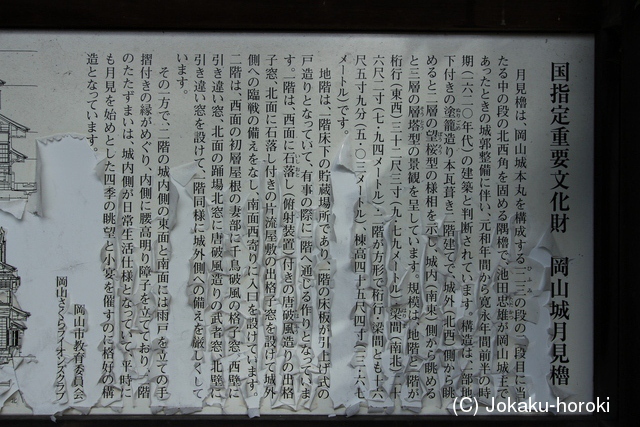 国指定重要文化財 岡山城月見櫓
月見櫓は、岡山城本丸を構成する二・三の段の二段目に当
たる中の段の北西角を固める隅櫓で、池田忠雄が岡山城主で
あったときの城郭整備に伴い、元和年間から寛永年間前半の時
期(一六二〇年代)の建築と判断されています。構造は、一部地
下付きの塗籠造り本瓦葺き二階建てで、城外(北西)側から眺
めると二層の望楼型の様相を示し、城内(南東)側から眺める
と三層の層塔型の景観を呈しています。規模は、地階と一階が
桁行(東西)三十二尺三寸(九・七九メートル)、梁間(南北)二十
六尺二寸(七・九四メートル)、二階が方形で桁行・梁間とも十六
尺五寸九分(五・〇三メートル)、棟高四十五尺四寸(一三・六七
メートル)です。
地階は、一階床下の貯蔵場所であり、一階の床板が引上げ式の
戸造りとなっていて、有事の際に一階へ通じる作りとなっていま
す。一階は、西面に石落し(俯射装置)付きの唐破風造りの出格
子窓、北面に石落し付きの片流屋敷の出格子窓を設けて城外
側への臨戦の備えをなし、南面西寄りに入口を設けています。
二階は、西面の初層屋根の妻部に千鳥破風の格子窓、西壁に
引き違い窓、北面の踊場北窓に唐破風造りの武者窓、北壁に
引き違い窓を設けて、一階同様に城外側への備えを厳しくして
います。
その一方で、二階の城内側の東面と南面には雨戸を立ての手
摺付きの縁がめぐり、内側に腰高明り障子を立てており、一階
のたたずまいは、城内側が日常生活仕様となっていて、平時に
も月見を始めとした四季の眺望と小宴を催すのに格好の構
造となっています。
岡山市教育委員会
岡山さくらライオンズクラブ
(C) Jokaku-horoki